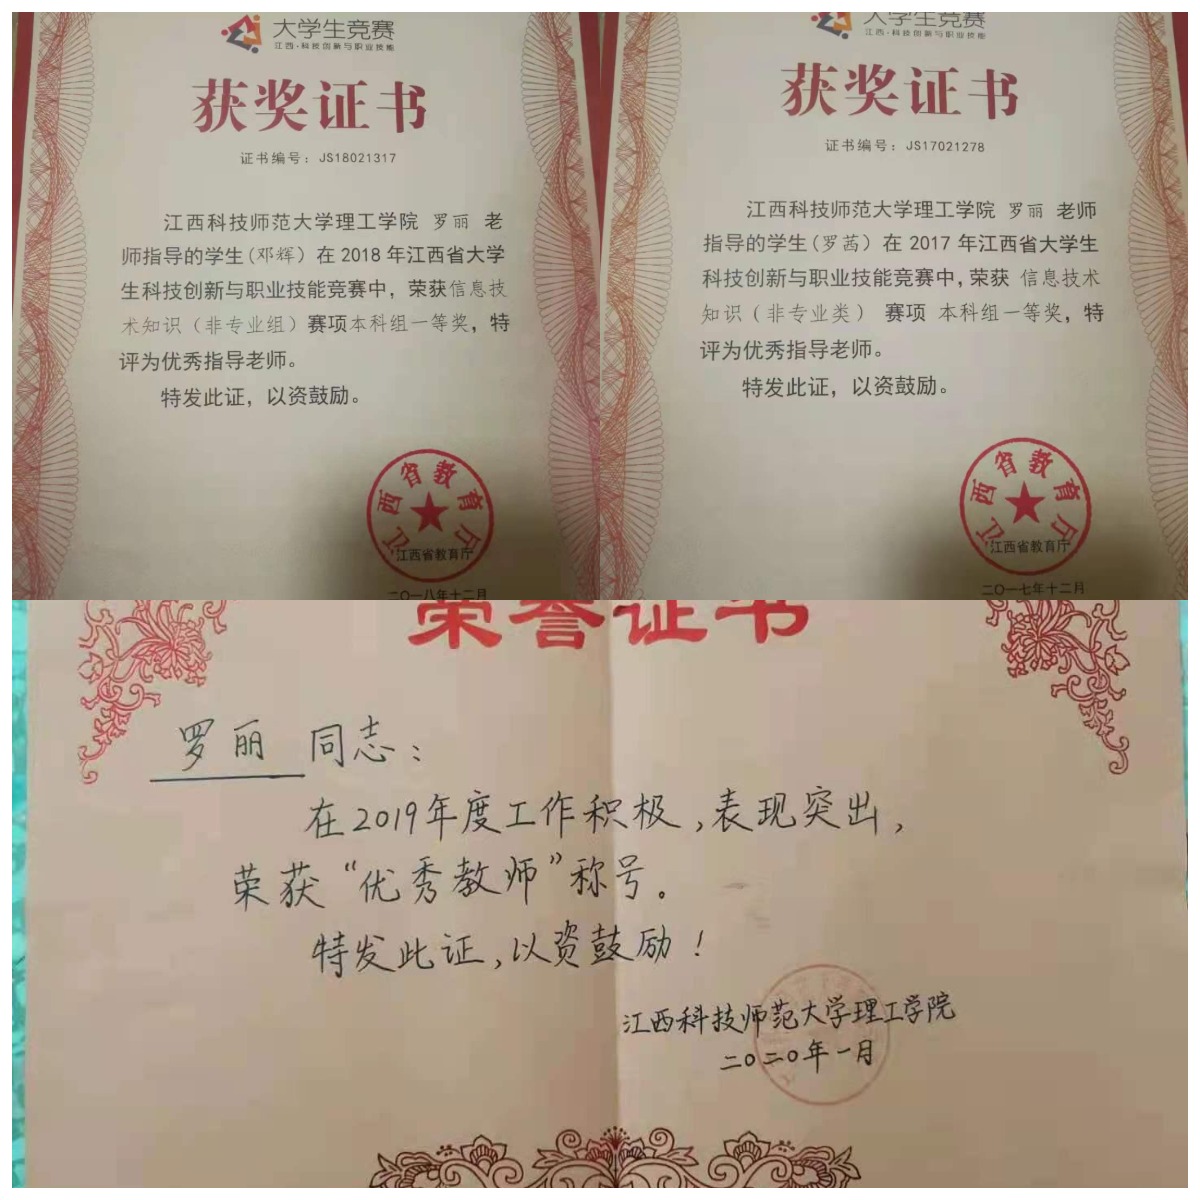 大学生竞赛
江西·科技创新与职业技能
获奖证书
证书编号：JS18021317
江西科技师范大学理工学院 罗丽 老
师指导的学生(邓辉）在 2018 年江西省大学
生科技创新与职业技能竞赛中，荣获信息技
术知识（非专业组）赛项本科组一等奖，特
评为优秀指导老师。
特发此证，以资鼓励。
江西省教育厅
江西省教育厅
二〇一八年十二月
大学生竞赛
江西·科技创新与职业技能
获奖证书
证书编号：JS17021278
江西科技师范大学理工学院 罗丽 老师
指导的学生(罗茜）在 2017 年江西省大学生
科技创新与职业技能竞赛中，荣获 信息技术
知识（非专业类） 赛项 本科组一等奖，特
评为优秀指导老师。
特发此证，以资鼓励。
江西省教育厅
江西省教育厅
二〇一七年十二月
荣誉证书
罗丽 同志：
在2019年度工作积极，表现突出，
荣获“优秀教师”称号。
特发此证，以资鼓励！
江西科技师范大学理工学院
二〇二〇年一月